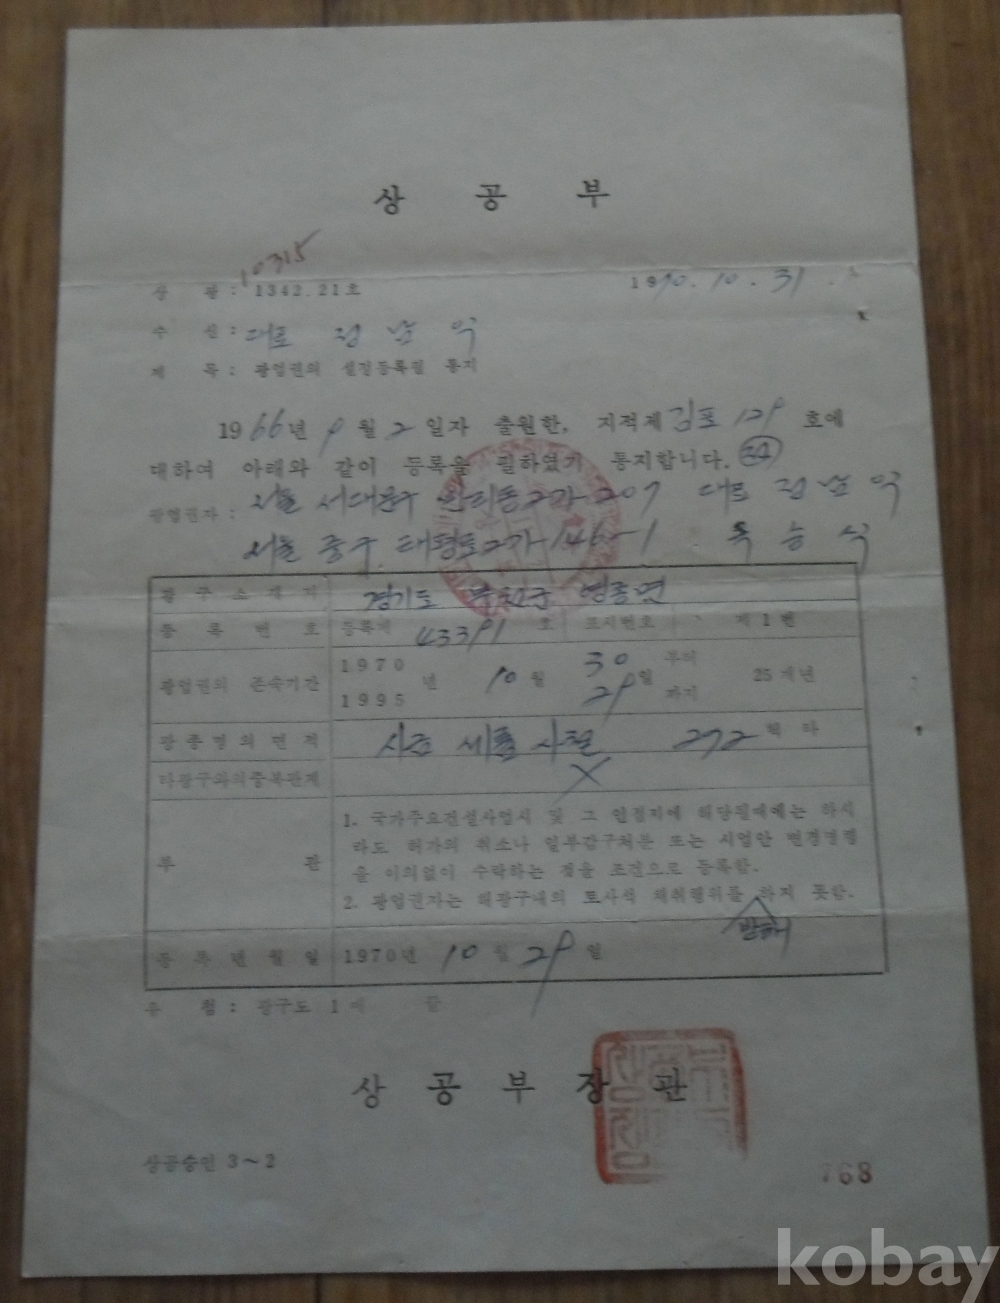 상 공 부
10315
상 광 : 1342.21호 1970.10.31.
수 신 : 대표 정 남 익
제 목 : 광업권의 설정등록필 통지
1966년 9월 2일자 출원한, 지적제 김포 129 호에
대하여 아래와 같이 등록을 필하였기 통지합니다. 34
광업권자 : 서울 서대문구 만리동2가 207 대표 정 남 익
서울 중구 태평로2가 146-1 옥 승 식
광구소재지 경기도 부천군 영종면
등록번호 등록제 43391 호 표시번호 제1번
광업권의 존속기간 1970 년 10월 30일 부터 25개년
1995 29 까지
광종명의면적 사금 세륨 사철 272 헥타
타광구와의중복관계 X
부 관 1. 국가주요건설사업시 및 그 인접지에 해당될때에는 하시
라도 허가의 취소나 일부감구처분 또는 시업안 변경명령
을 이의없이 수락하는 것을 조건으로 등록함.
2. 광업권자는 해광구내의 토사석 채취행위를 하지 못함.
방해
등록년월일 1970년 10월 29일
유 첨 : 광구도 1매 끝
상 공 부 장 관
상공승인 3~2
768
kobay